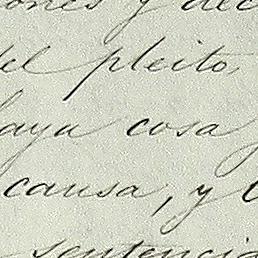 ones y dec
del pleito,
haya cosa
causa, y
sentencia